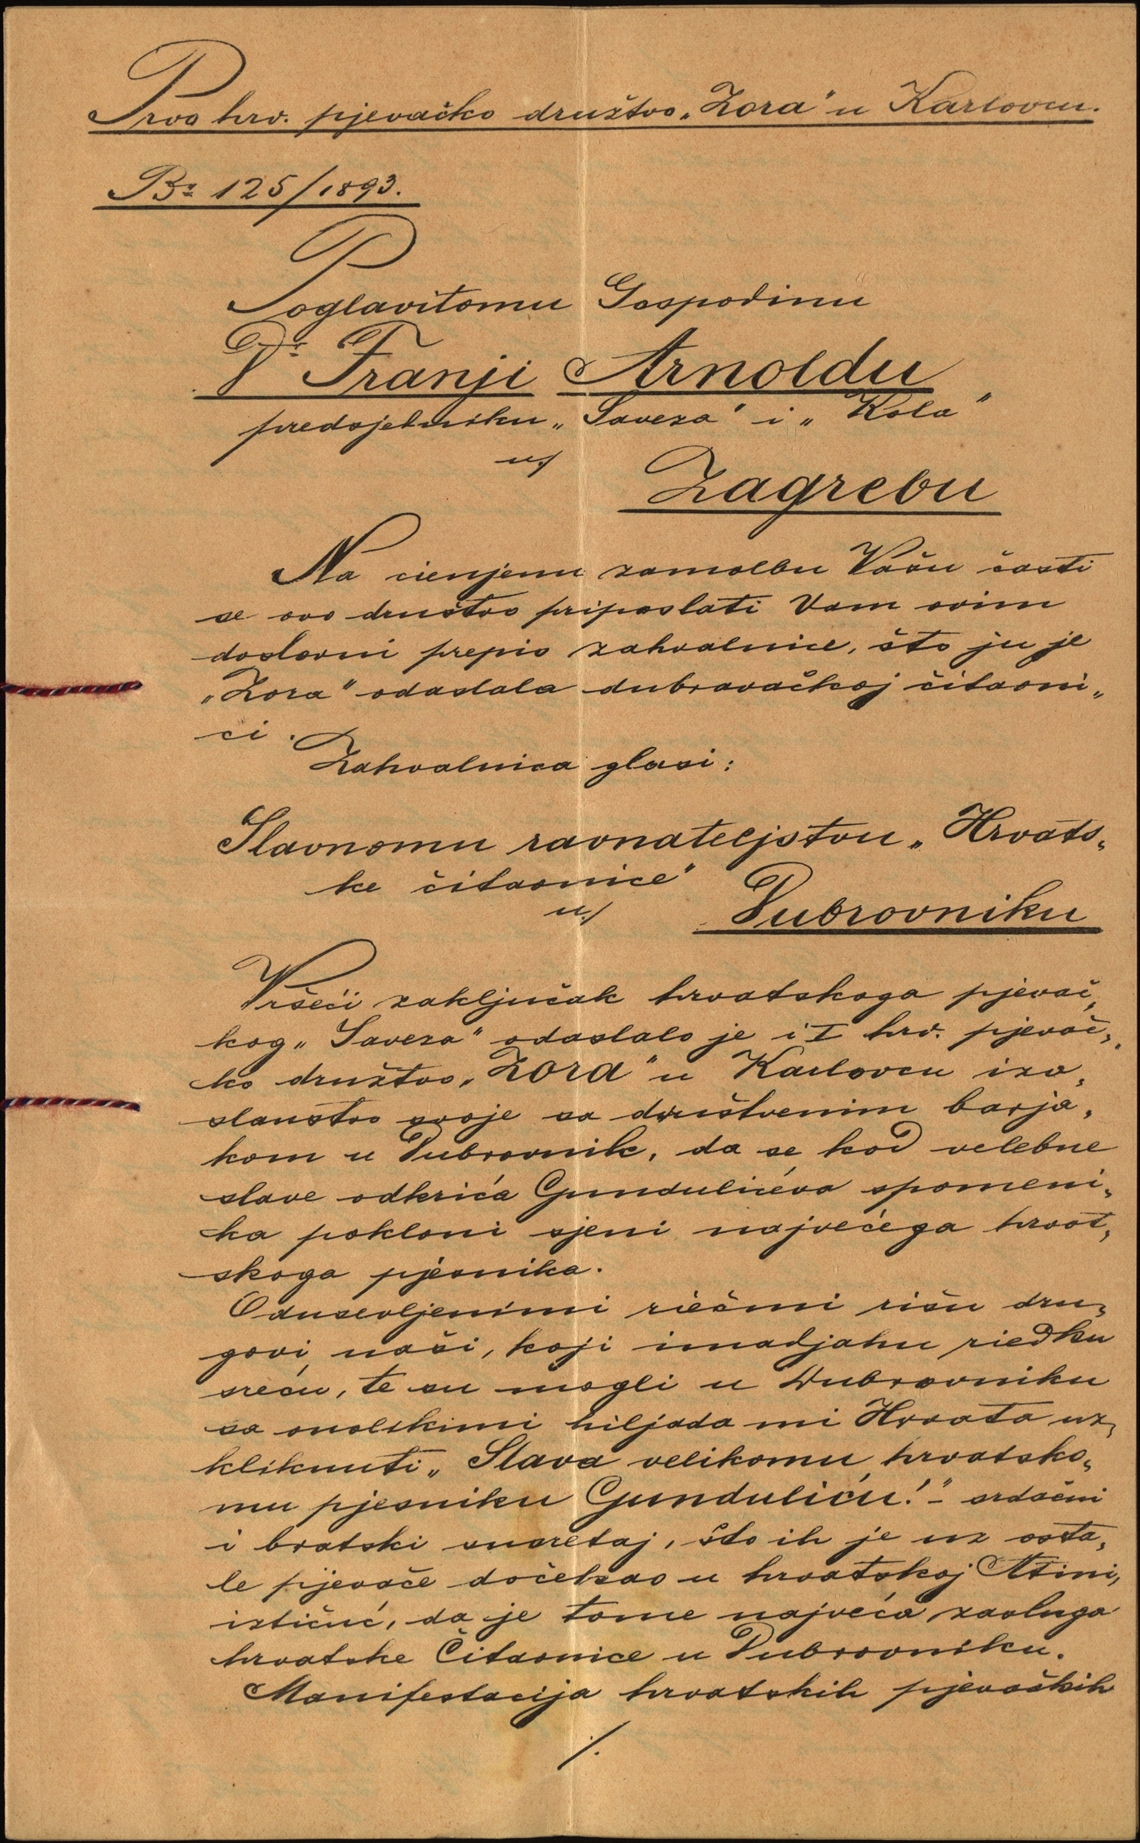 Prvo hrv. pjevačko družtvo „Zora" u Karlovcu.
Br 125/1893.
Poglavitomu Gospodinu
Dr Franji Arnoldu
predsjedniku „Saveza" i „Kola"
u/
Zagrebu
Na cienjenu zamolbu Vašu časti
se ovo družtvo pripaslati Vam ovim
doslovni prepis zahvalnice, što ju je
„Zora" odaslala dubrovačkoj čitaoni„
ci.
Zahvalnica glasi:
Slavnomu ravnateljstvu „Hrvats„
ke čitaonice"
u/
Dubrovniku
Vršeći zaključak hrvatskoga pjevač„
kog „Saveza" odaslalo je i I hrv. pjevač„
ko družtvo „Zora" u Karlovcu iza„
slanstvo svoje sa družtvenim barja„
kom u Dubrovnik, da se kod velebne
slave odkrića Gundulićeva spomeni„
ka pokloni sjeni najvećega hrvat„
skoga pjesnika.
Oduševljenimi riečmi rišu dru„
govi naši, koji imadjahu riedku
sreću, te su mogli u Dubrovniku
sa onolikimi hiljada mi Hrvata uz„
kliknuti „Slava velikomu hrvatsko„
mu pjesniku Gunduliću!" – srdačni
i bratski susretaj, što ih je uz osta„
le pjevače dočekao u hrvatskoj Atini,
ističuć, da je tome najveća zasluga
hrvatske Čitaonice u Dubrovniku.
Manifestacija hrvatskih pjevačkih
./.